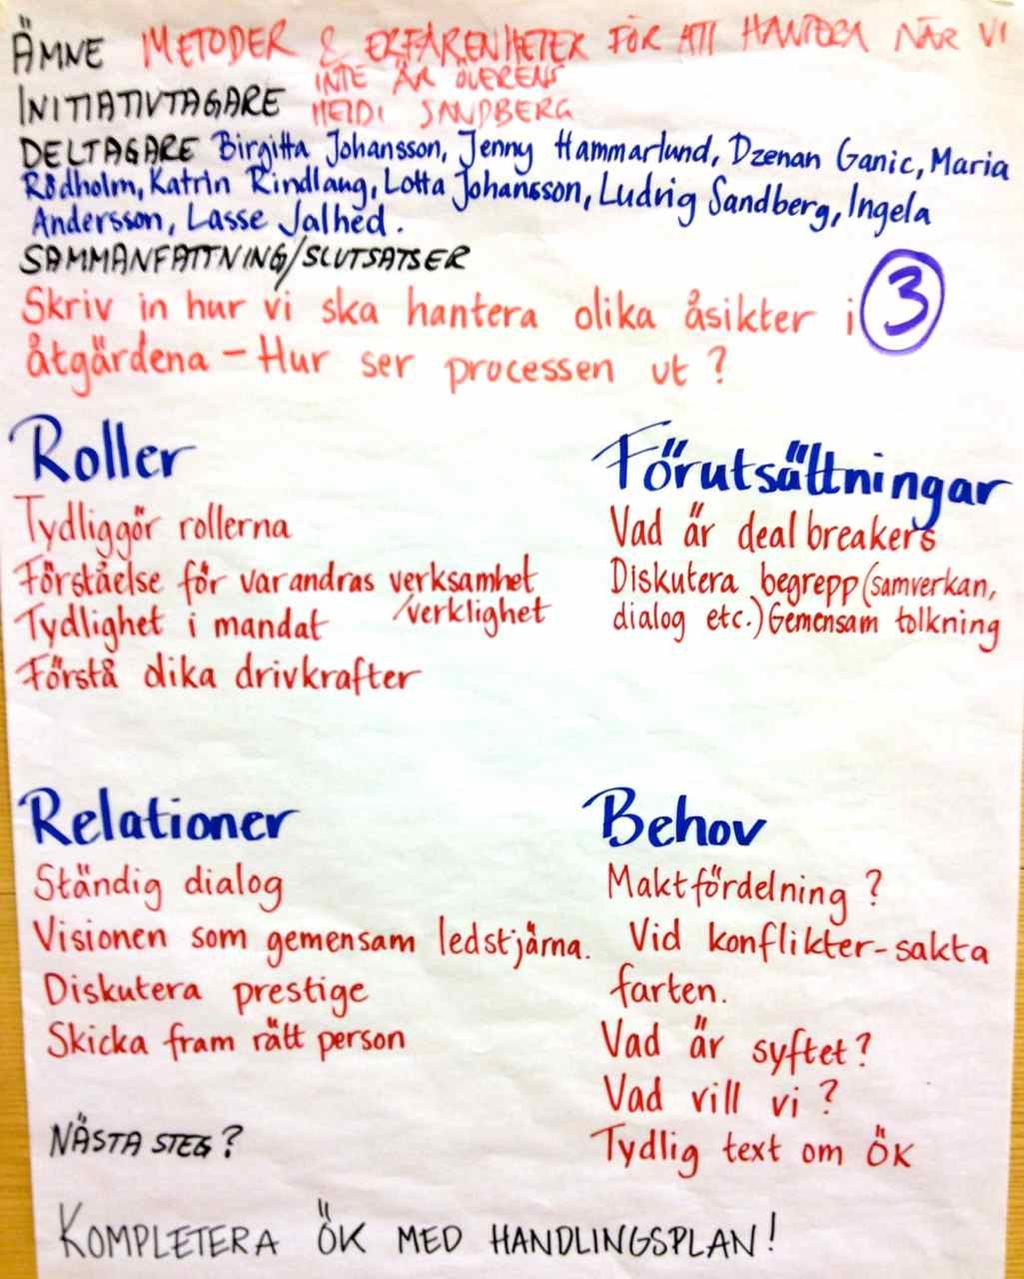 ÄMNE METODER & ERFARENHETER FÖR ATT HANTERA NÄR VI
INTE ÄR ÖVERENS
INITIATIVTAGARE HEIDI SANDBERG
DELTAGARE Birgitta Johansson, Jenny Hammarlund, Dzenan Ganic, Maria
Rödholm, Katrin Rindlaug, Lotta Johansson, Ludvig Sandberg, Ingela
Andersson, Lasse Jalhed.
SAMMANFATTNING/SLUTSATSER
Skriv in hur vi ska hantera olika åsikter i
åtgärdena - Hur ser processen ut?
3
Roller
Tydliggör rollerna
Förståelse för varandras verksamhet
/verklighet
Tydlighet i mandat
Förstå olika drivkrafter
Förutsättningar
Vad är deal breakers
Diskutera begrepp (samverkan,
dialog etc.) Gemensam tolkning
Relationer
Ständig dialog
Visionen som gemensam ledstjärna.
Diskutera prestige
Skicka fram rätt person
Behov
Maktfördelning?
Vid konflikter - sakta
farten.
Vad är syftet?
Vad vill vi?
Tydlig text om ÖK
NÄSTA STEG?
KOMPLETERA ÖK MED HANDLINGSPLAN!